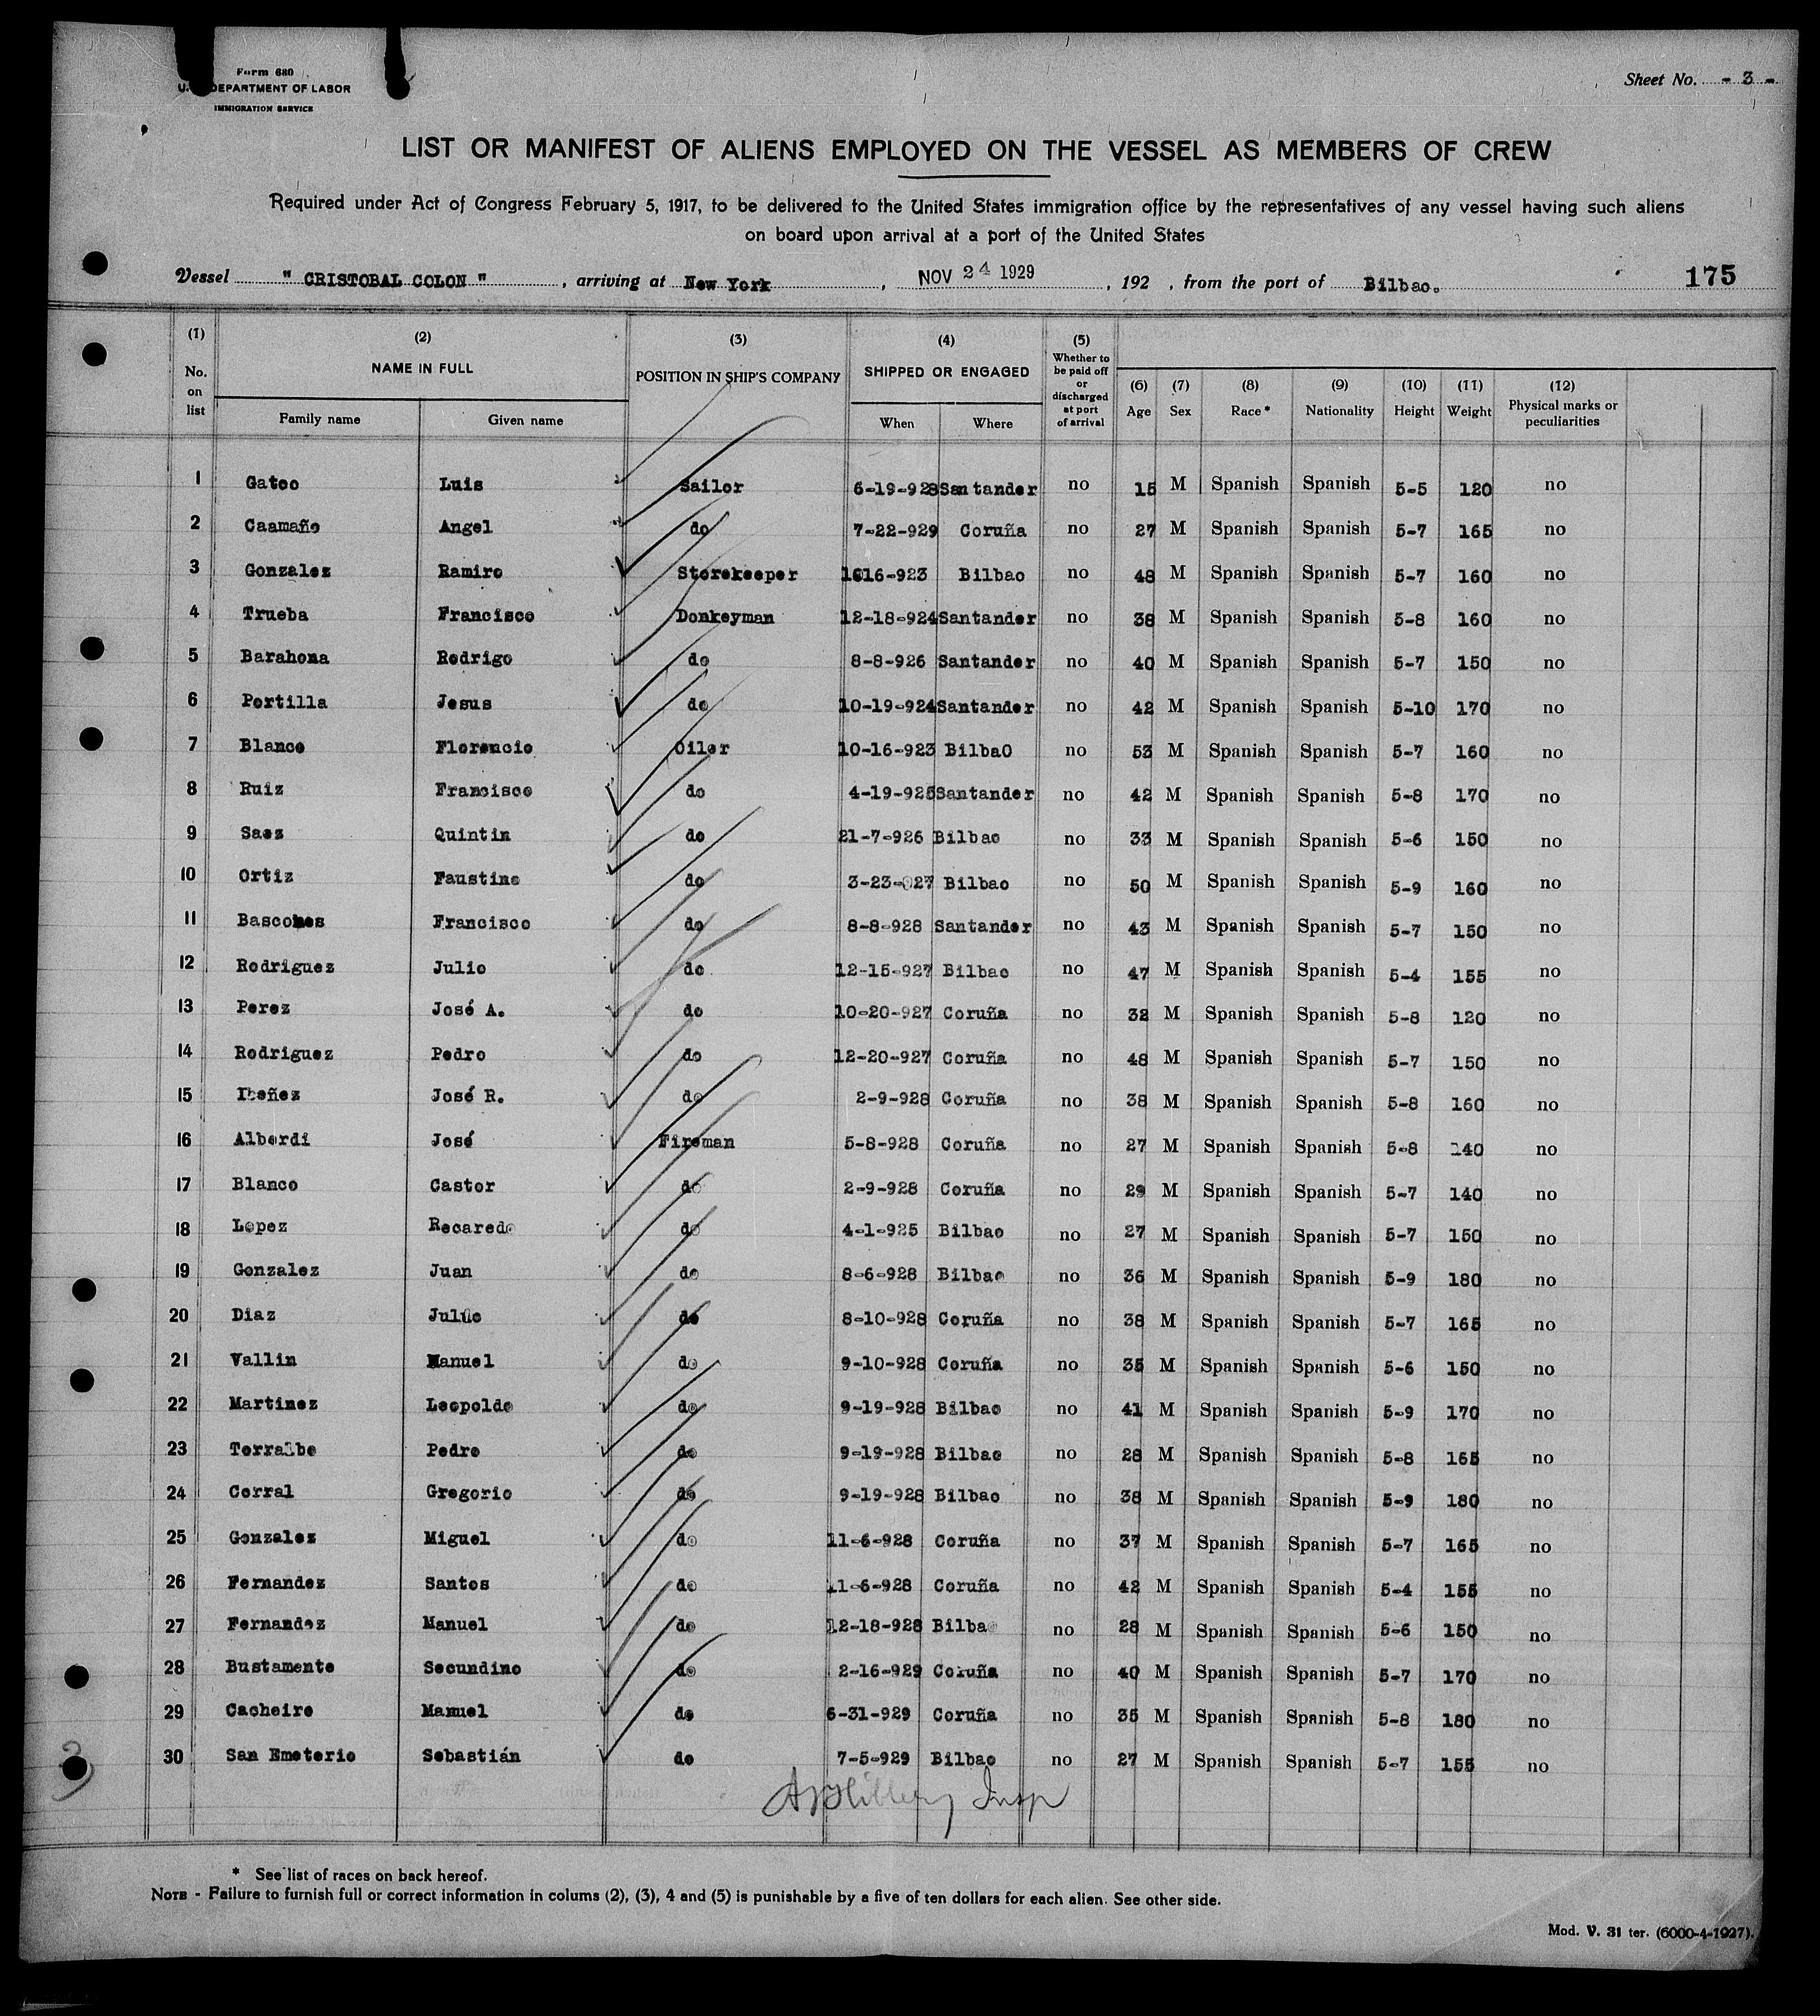 Form 680
U. DEPARTMENT OF LABOR
IMMIGRATION SERVICE
Sheet No. - 3 -
LIST OR MANIFEST OF ALIENS EMPLOYED ON THE VESSEL AS MEMBERS OF CREW
Required under Act of Congress February 5, 1917, to be delivered to the United States immigration office by the representatives of any vessel having such aliens
on board upon arrival at a port of the United States
Vessel " CRISTOBAL COLON ", arriving at New York, NOV 24 1929, 192 , from the port of Bilbao. 175
(1) No. on list
(2) NAME IN FULL
Family name Given name
(3) POSITION IN SHIP'S COMPANY
(4) SHIPPED OR ENGAGED
When Where
(5) Whether to be paid off or discharged at port of arrival
(6) Age (7) Sex (8) Race* (9) Nationality (10) Height (11) Weight (12) Physical marks or peculiarities
1 Gatoo Luis Sailor 6-19-928 Santander no 15 M Spanish Spanish 5-5 120 no
2 Caamaño Angel do 7-22-929 Coruña no 27 M Spanish Spanish 5-7 165 no
3 Gonzalez Ramiro Storekeeper 1616-923 Bilbao no 48 M Spanish Spanish 5-7 160 no
4 Trueba Francisco Donkeyman 12-18-924 Santander no 38 M Spanish Spanish 5-8 160 no
5 Barahona Rodrigo do 8-8-926 Santander no 40 M Spanish Spanish 5-7 150 no
6 Portilla Jesus do 10-19-924 Santander no 42 M Spanish Spanish 5-10 170 no
7 Blanco Florencio Oiler 10-16-923 BilbaO no 53 M Spanish Spanish 5-7 160 no
8 Ruiz Francisco do 4-19-925 Santander no 42 M Spanish Spanish 5-8 170 no
9 Saez Quintin do 21-7-926 Bilbao no 33 M Spanish Spanish 5-6 150 no
10 Ortiz Faustino do 3-23-927 Bilbao no 50 M Spanish Spanish 5-9 160 no
11 Bascones Francisco do 8-8-928 Santander no 43 M Spanish Spanish 5-7 150 no
12 Rodriguez Julio do 12-15-927 Bilbao no 47 M Spanish Spanish 5-4 155 no
13 Perez José A. do 10-20-927 Coruña no 32 M Spanish Spanish 5-8 120 no
14 Rodriguez Pedro do 12-20-927 Coruña no 48 M Spanish Spanish 5-7 150 no
15 Ibeñez José R. do 2-9-928 Coruña no 38 M Spanish Spanish 5-8 160 no
16 Alberdi José Fireman 5-8-928 Coruña no 27 M Spanish Spanish 5-8 140 no
17 Blanco Castor do 2-9-928 Coruña no 29 M Spanish Spanish 5-7 140 no
18 Lopez Recaredo do 4-1-925 Bilbao no 27 M Spanish Spanish 5-7 150 no
19 Gonzalez Juan do 8-6-928 Bilbao no 36 M Spanish Spanish 5-9 180 no
20 Diaz Julio do 8-10-928 Coruña no 38 M Spanish Spanish 5-7 165 no
21 Vallin Manuel do 9-10-928 Coruña no 35 M Spanish Spanish 5-6 150 no
22 Martinez Leopoldo do 9-19-928 Bilbao no 41 M Spanish Spanish 5-9 170 no
23 Torralbo Pedro do 9-19-928 Bilbao no 28 M Spanish Spanish 5-8 165 no
24 Corral Gregorio do 9-19-928 Bilbao no 38 M Spanish Spanish 5-9 180 no
25 Gonzalez Miguel do 11-6-928 Coruña no 37 M Spanish Spanish 5-7 165 no
26 Fernandez Santos do 11-6-928 Coruña no 42 M Spanish Spanish 5-4 155 no
27 Fernandez Manuel do 12-18-928 Bilbao no 28 M Spanish Spanish 5-6 150 no
28 Bustamente Secundino do 2-16-929 Coruña no 40 M Spanish Spanish 5-7 170 no
29 Cacheiro Manuel do 6-31-929 Coruña no 35 M Spanish Spanish 5-8 180 no
30 San Emeterio Sebastián do 7-5-929 Bilbao no 27 M Spanish Spanish 5-7 155 no
3
Insp
* See list of races on back hereof.
NOTE - Failure to furnish full or correct information in colums (2), (3), 4 and (5) is punishable by a five of ten dollars for each alien. See other side.
Mod. V. 31 ter. (6000-4-1927).